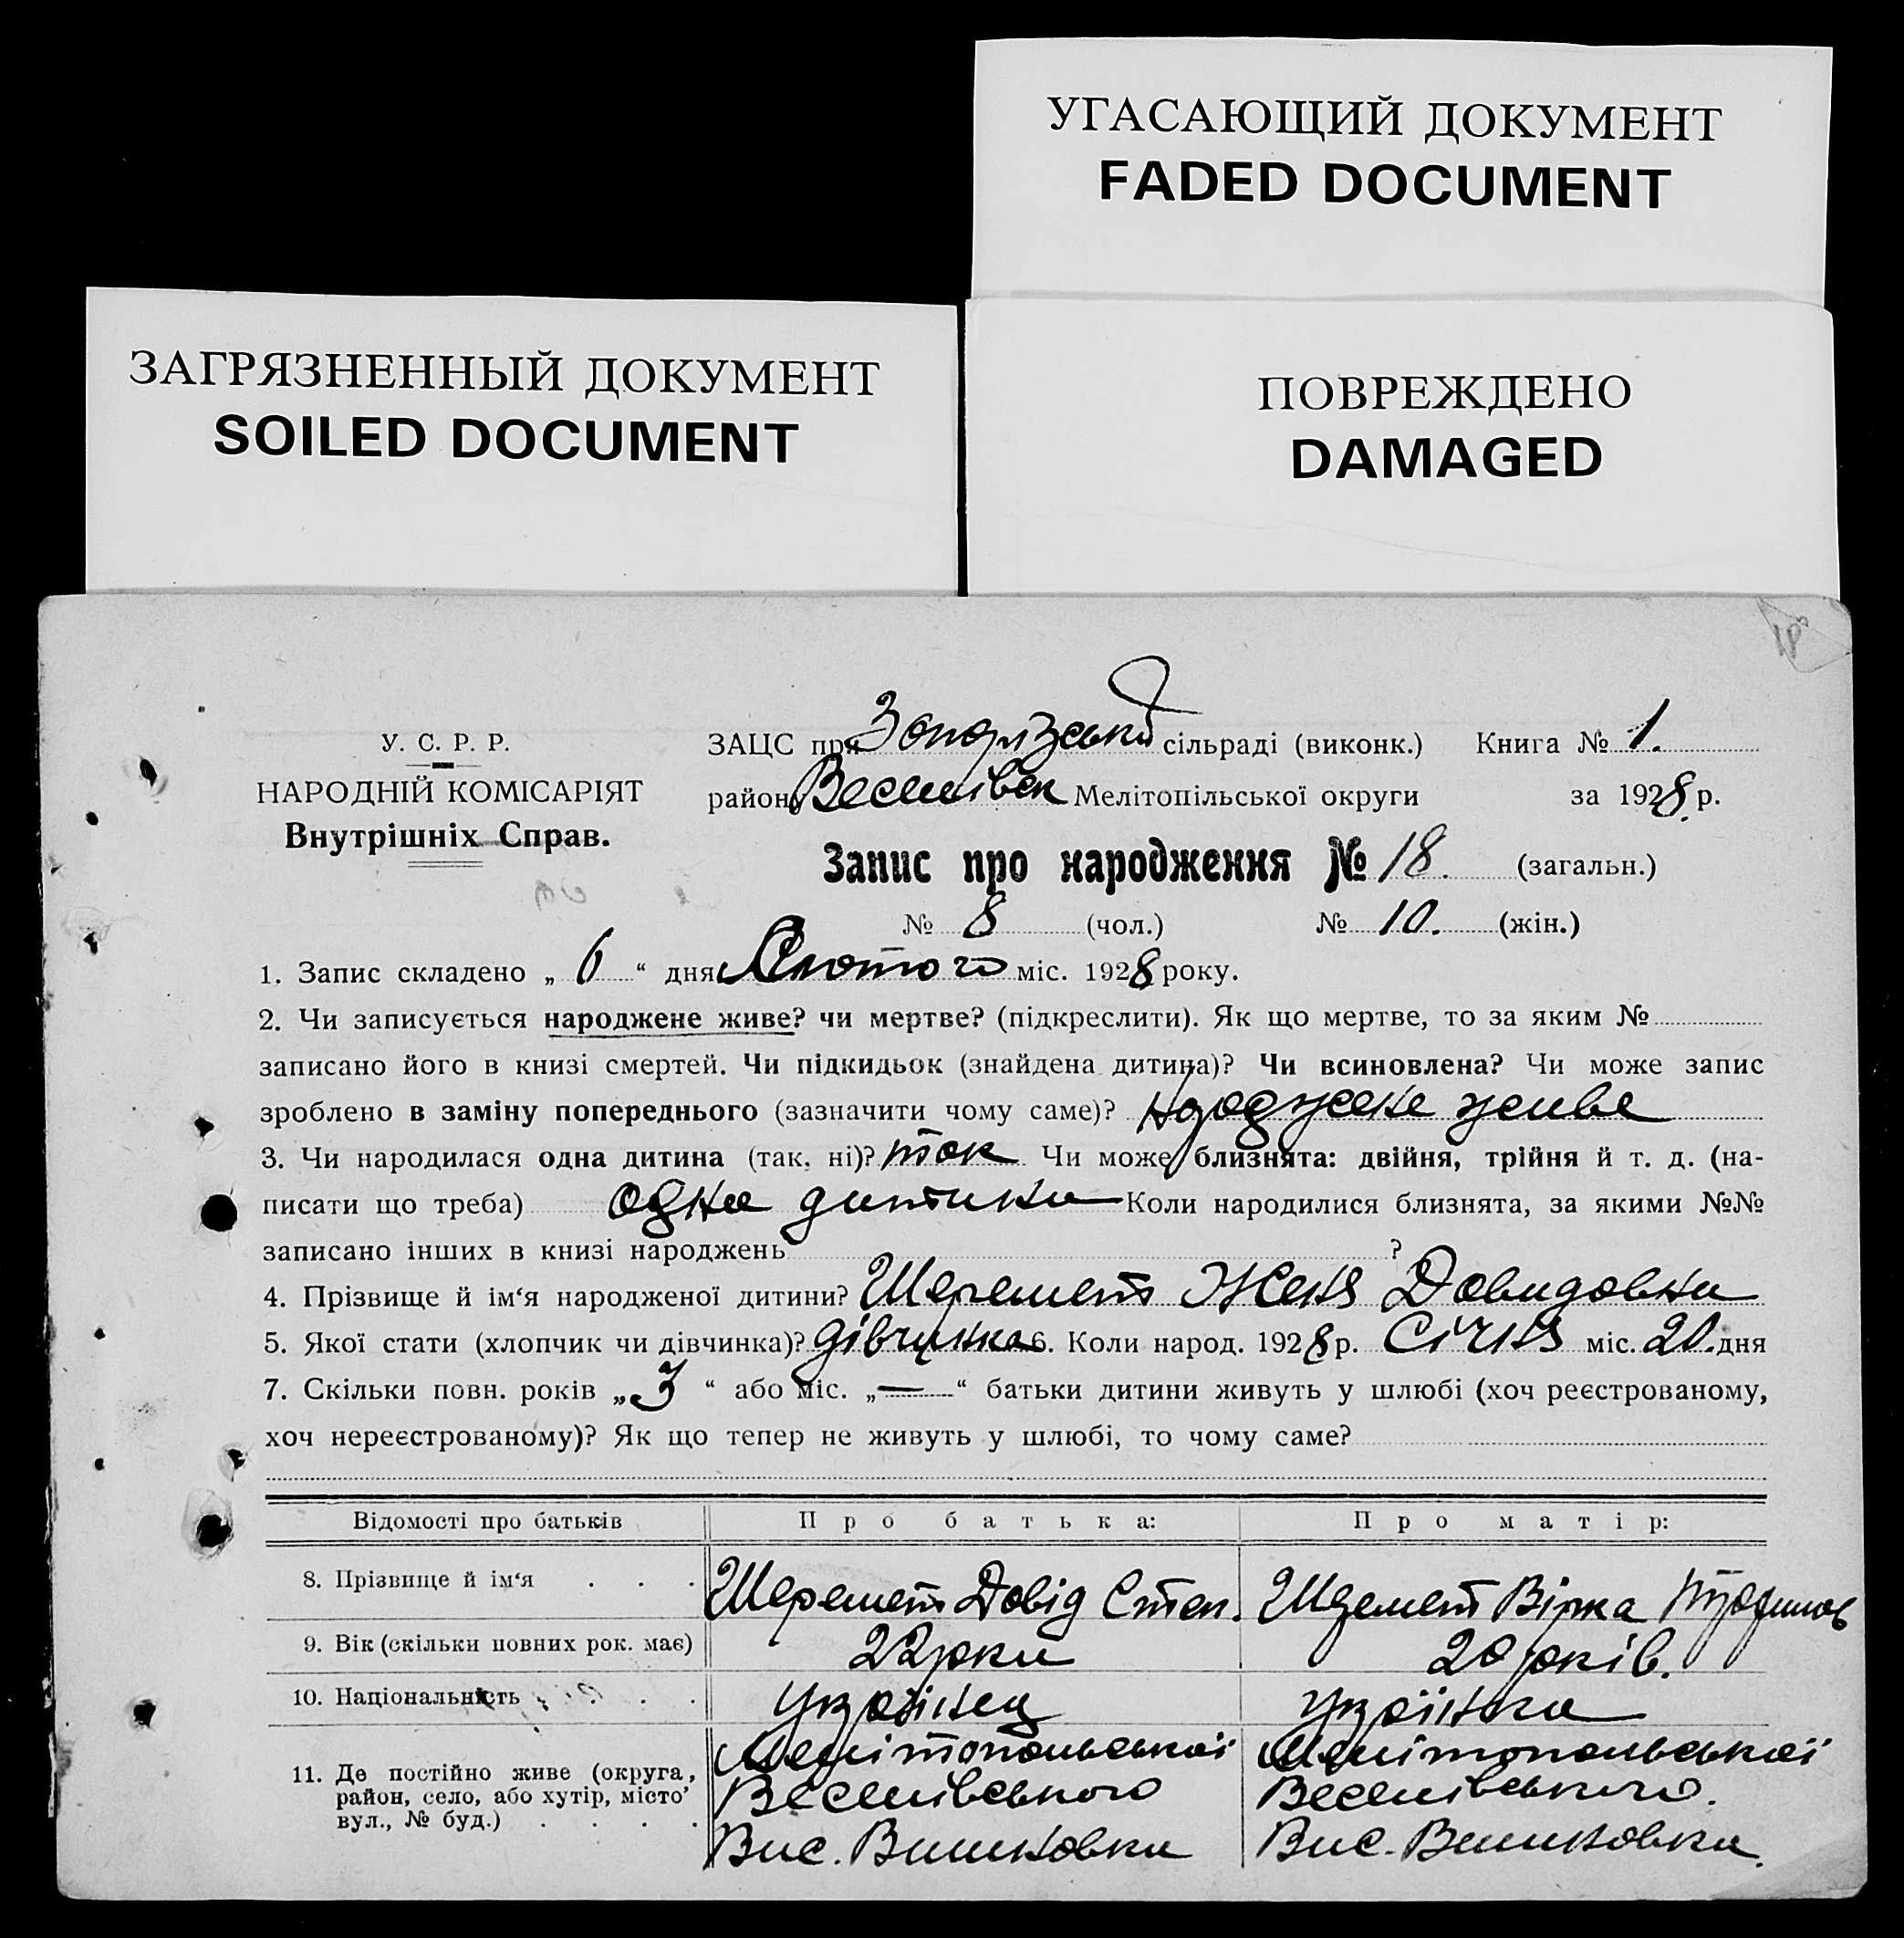 УГАСАЮЩИЙ ДОКУМЕНТ
FADED DOCUMENT
ЗАГРЯЗНЕННЫЙ ДОКУМЕНТ
SOILED DOCUMENT
ПОВРЕЖДЕНО
DAMAGED
18
У. С. Р. Р.
НАРОДНІЙ КОМІСАРІЯТ
Внутрішніх Справ.
ЗАЦС при Запорізській сільраді (виконк.) Книга № 1.
району Веселівськ Мелітопільської округи за 1928 р.
Запис про народження № 18. (загальн.)
№ 8 (чол.) № 10. (жін.)
1. Запис складено „ 6 “ дня Лютого міс. 1928 року.
2. Чи записується народжене живе? чи мертве? (підкреслити). Як що мертве, то за яким №
записано його в книзі смертей. Чи підкидьок (знайдена дитина)? Чи всиновлена? Чи може запис
зроблено в заміну попереднього (зазначити чому саме)? народжене живе
3. Чи народилася одна дитина (так, ні)? так Чи може близнята: двійня, трійня й т. д. (на-
писати що треба) одна дитина Коли народилися близнята, за якими №№
записано інших в книзі народжень ?
4. Прізвище й ім‘я народженої дитини? Шеремет Женя Довидовна
5. Якої стати (хлопчик чи дівчинка)? дівчинка 6. Коли народ. 1928 р. Січня міс. 20. дня
7. Скільки повн. років „ 3 “ або міс. „ — “ батьки дитини живуть у шлюбі (хоч реєстрованому,
хоч нереєстрованому)? Як що тепер не живуть у шлюбі, то чому саме?
Відомості про батьків Про батька: Про матір:
8. Прізвище й ім‘я . . . Шеремет Довід Степ. Шеремет Вірка
9. Вік (скільки повних рок. має) 22 роки 20 років.
10. Національність . . . Українец Українка
11. Де постійно живе (округа, район, село, або хутір, місто, вул., № буд.) . . . .
Мелітопольської Мелітопольської
Веселівського Веселівського.
Вис. Вишновка Вис. Вишновка.